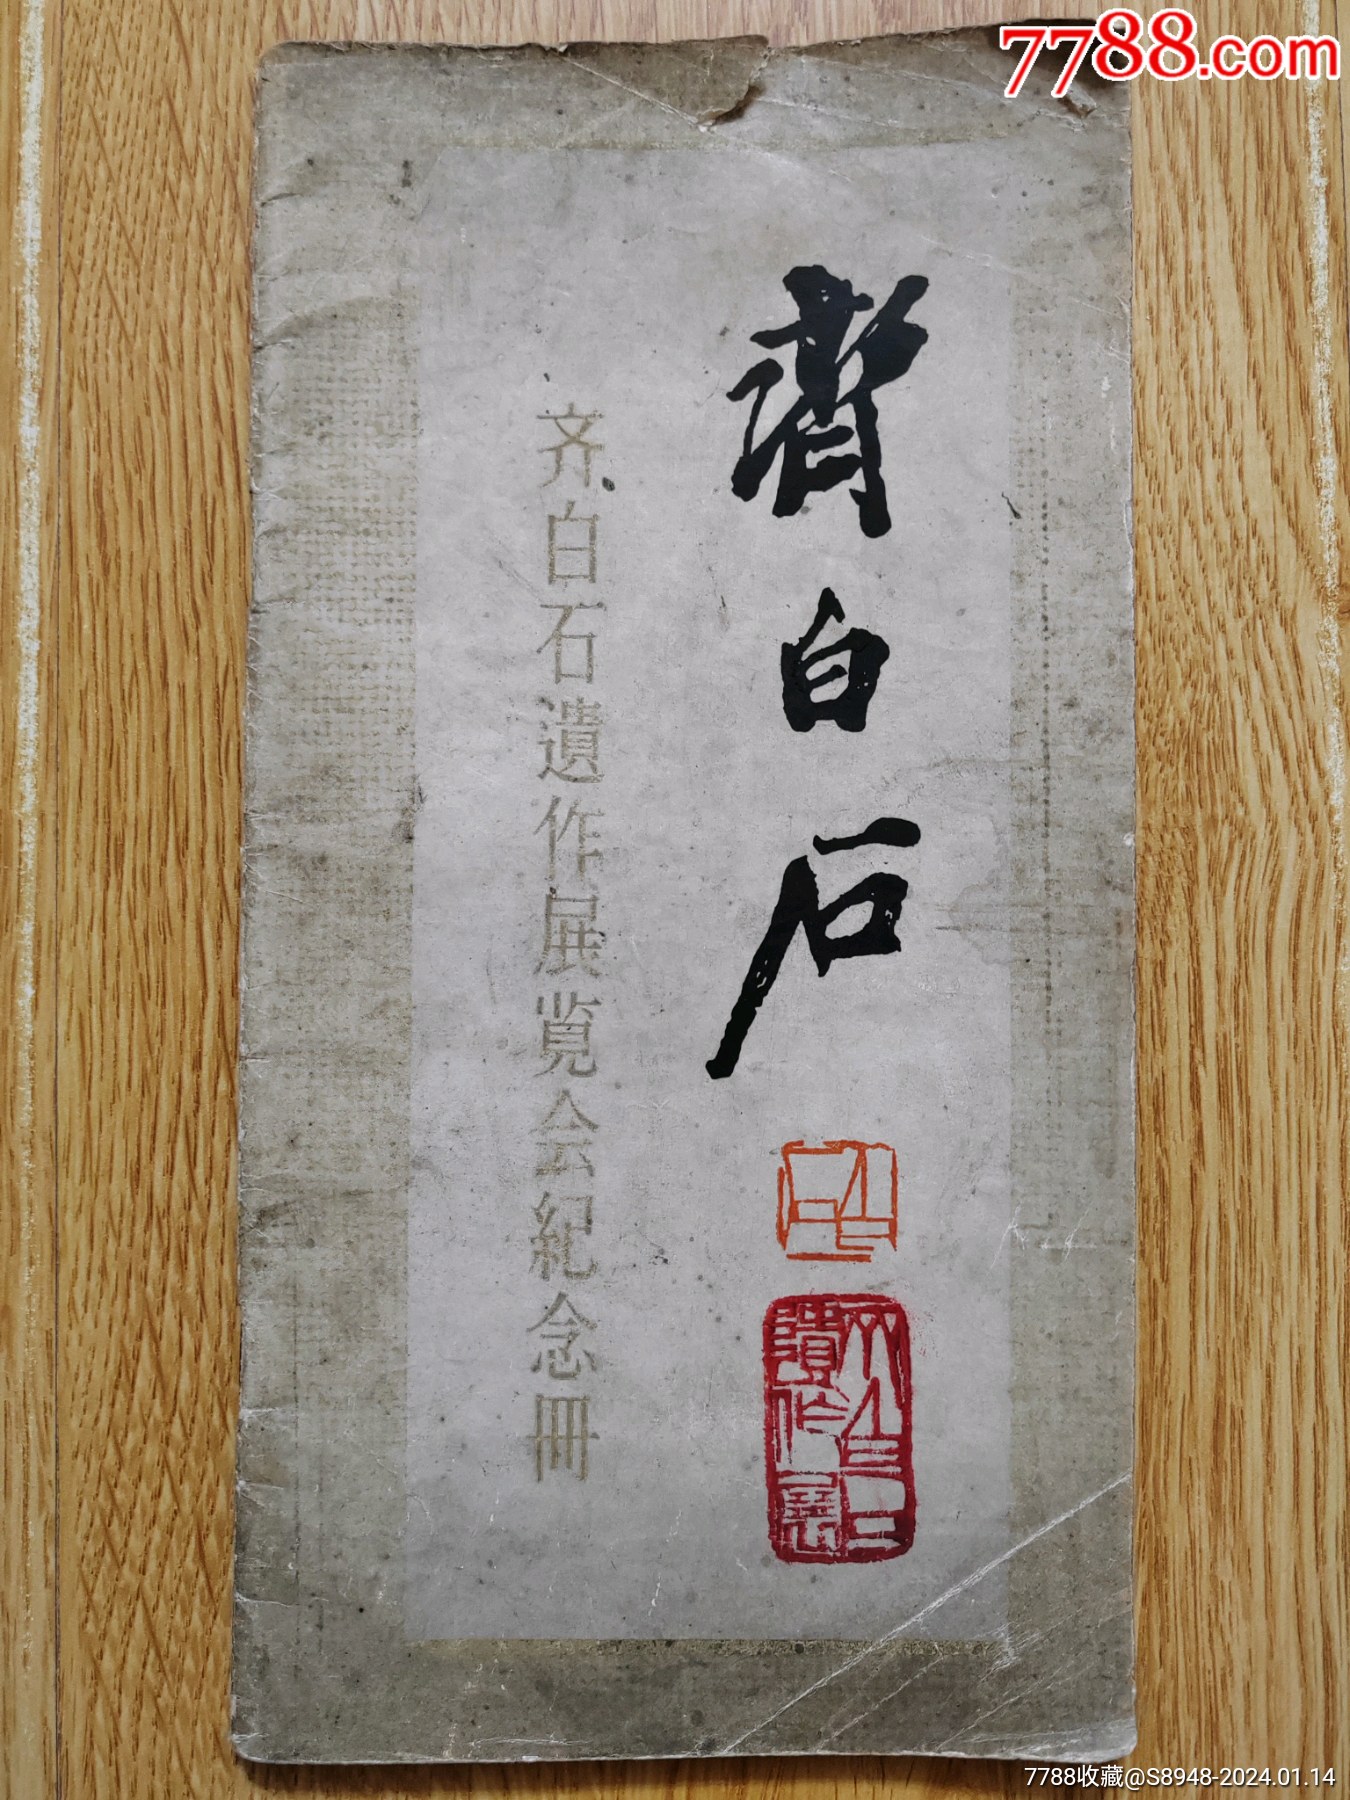 7788.com
齊白石
齐白石遺作展览会紀念冊
7788收藏@S8948-2024.01.14